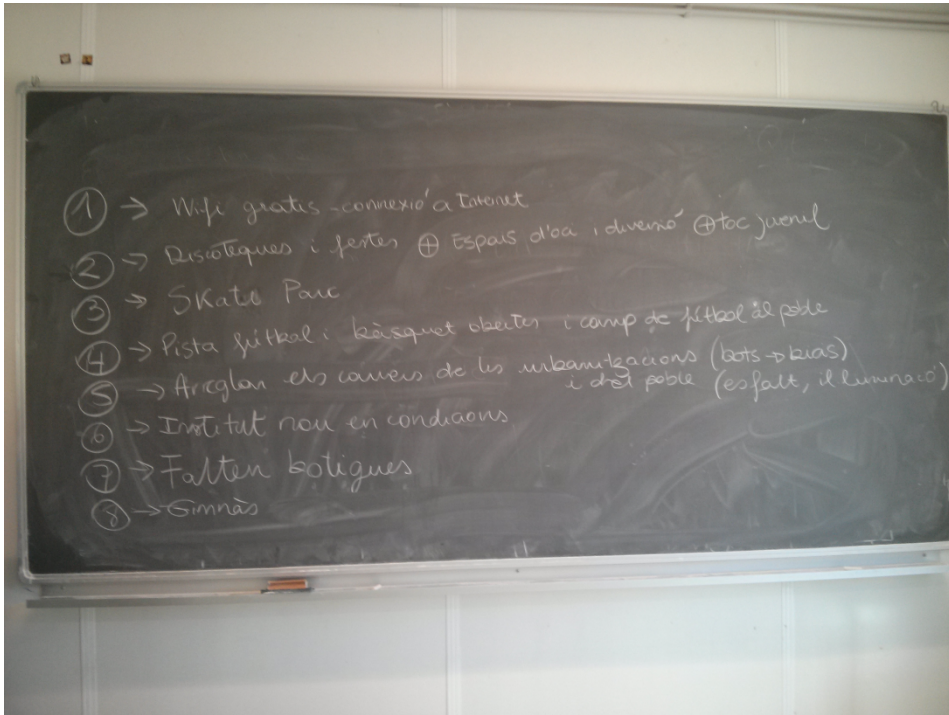 1 → Wifi gratis - connexió a Internet
2 → Discoteques i festes ⊕ Espais d'oci i diversió ⊕ toc juvenil
3 → Skate Parc
4 → Pista fútbol i bàsquet obertes i camp de fútbol al poble
5 → Arreglar els carrers de les urbanitzacions (bots → bias)
i del poble (esfalt, il·luminació)
6 → Institut nou en condicions
7 → Falten botigues
8 → Gimnàs